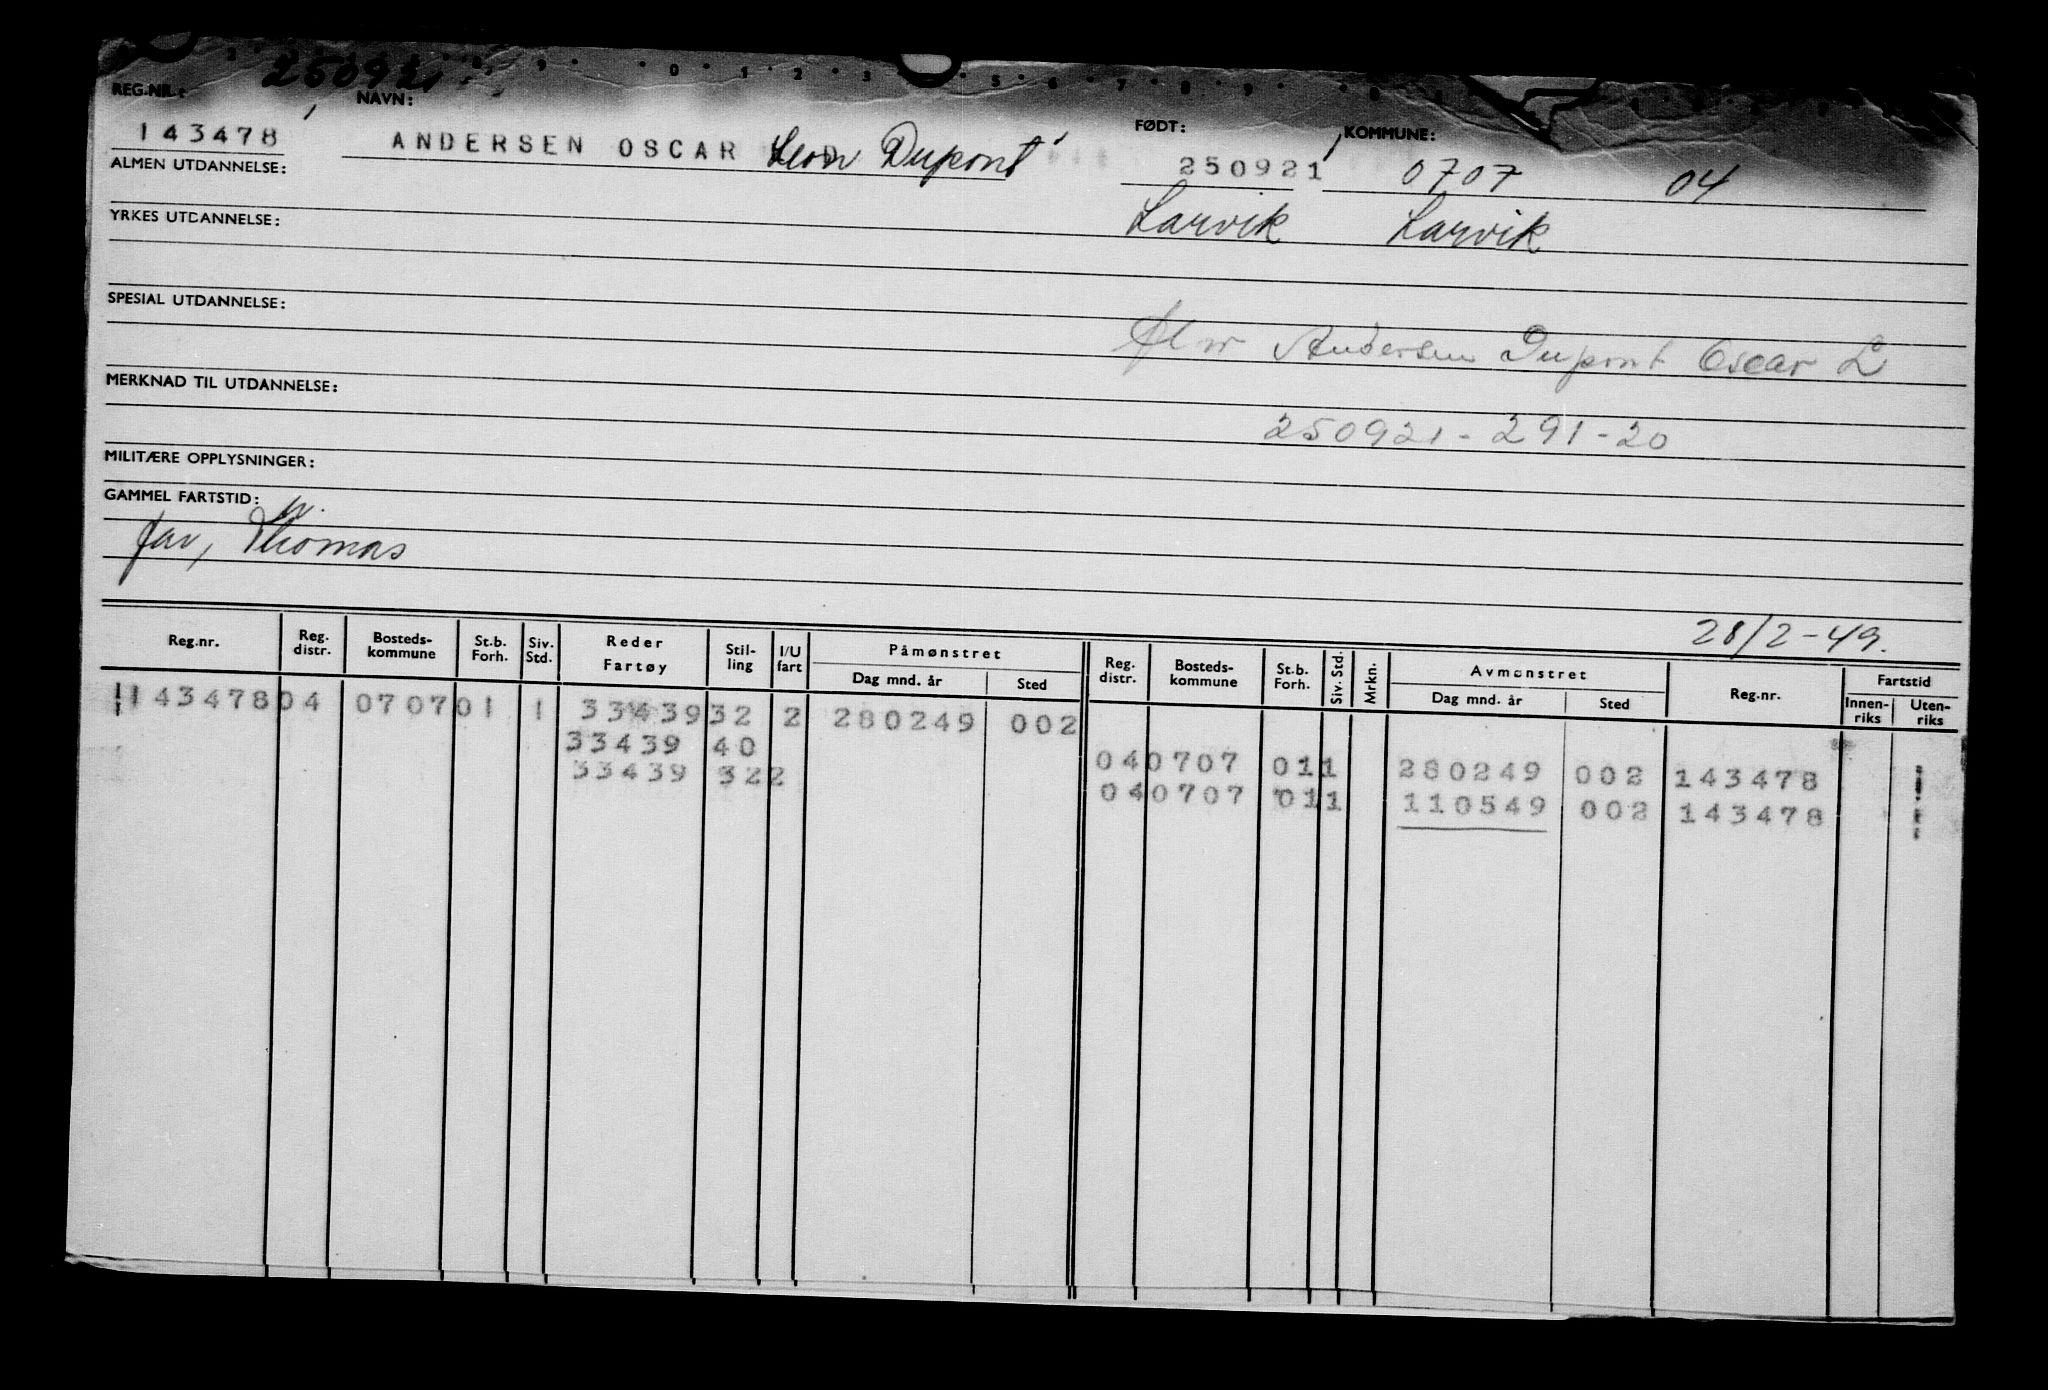 250921
REG.NR.:
NAVN:
FØDT:
KOMMUNE:
143478
ANDERSEN OSCAR Leon Dupont
250921
0707 04
ALMEN UTDANNELSE:
Larvik Larvik
YRKES UTDANNELSE:
SPESIAL UTDANNELSE:
Andersen Dupont Oscar L
MERKNAD TIL UTDANNELSE:
250921-291-20
MILITÆRE OPPLYSNINGER:
GAMMEL FARTSTID:
far, Thomas
28/2-49.
Reg.nr. Reg. distr. Bosteds-kommune St.b. Forh. Siv. Std. Reder Fartøy Stil-ling I/U fart Påmønstret Dag mnd. år Sted Reg. distr. Bosteds-kommune St.b. Forh. Siv. Std. Mrkn. Avmønstret Dag mnd. år Sted Reg.nr. Fartstid Innen-riks Uten-riks
143478 04 0707 01 1 33439 32 2 280249 002
33439 40 04 0707 01 1 280249 002 143478
33439 32 2 04 0707 01 1 110549 002 143478